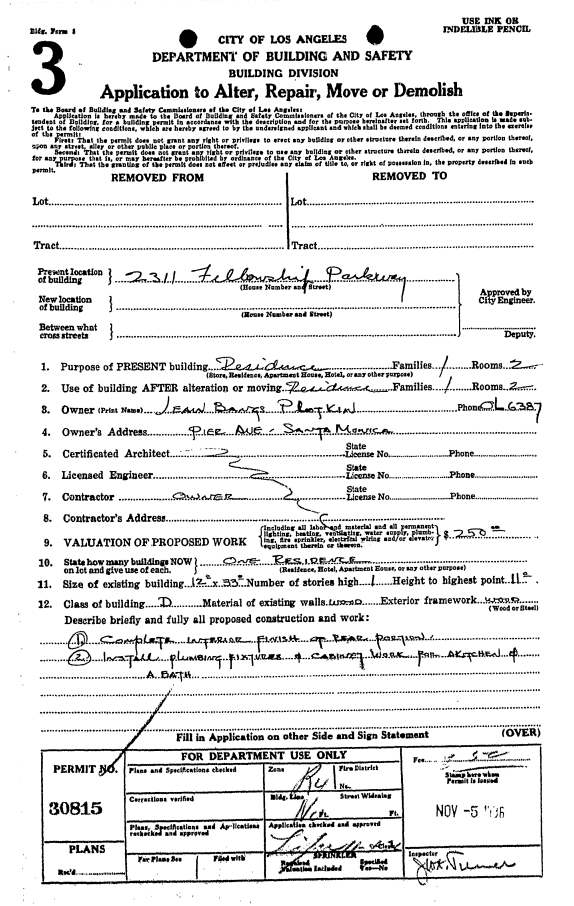 Bldg. Form 3
USE INK OR
INDELIBLE PENCIL
3
CITY OF LOS ANGELES
DEPARTMENT OF BUILDING AND SAFETY
BUILDING DIVISION
Application to Alter, Repair, Move or Demolish
To the Board of Building and Safety Commissioners of the City of Los Angeles:
Application is hereby made to the Board of Building and Safety Commissioners of the City of Los Angeles, through the office of the Superintendent of Building, for a building permit in accordance with the description and for the purpose hereinafter set forth. This application is made subject to the following conditions, which are hereby agreed to by the undersigned applicant and which shall be deemed conditions entering into the exercise of the permit:
First: That the permit does not grant any right or privilege to erect any building or other structure therein described, or any portion thereof, upon any street, alley or other public place or portion thereof.
Second: That the permit does not grant any right or privilege to use any building or other structure therein described, or any portion thereof, for any purpose that is, or may hereafter be prohibited by ordinance of the City of Los Angeles.
Third: That the granting of the permit does not affect or prejudice any claim of title to, or right of possession in, the property described in such permit.
REMOVED FROM REMOVED TO
Lot Lot
Tract Tract
Present location of building } 2311 Fellowship Parkway
(House Number and Street)
New location of building }
(House Number and Street)
Between what cross streets }
Approved by
City Engineer.
Deputy.
1. Purpose of PRESENT building Residence Families 1 Rooms 2
(Store, Residence, Apartment House, Hotel, or any other purpose)
2. Use of building AFTER alteration or moving Residence Families 1 Rooms 2
3. Owner (Print Name) JEAN BANKS PLOTKIN Phone OL 6387
4. Owner's Address PIER AVE - SANTA MONICA
5. Certificated Architect State License No. Phone
6. Licensed Engineer State License No. Phone
7. Contractor OWNER State License No. Phone
8. Contractor's Address
9. VALUATION OF PROPOSED WORK {Including all labor and material and all permanent lighting, heating, ventilating, water supply, plumbing, fire sprinkler, electrical wiring and/or elevator equipment therein or thereon.} $ 250
10. State how many buildings NOW on lot and give use of each. } ONE RESIDENCE
(Residence, Hotel, Apartment House, or any other purpose)
11. Size of existing building 12° x 33° Number of stories high 1 Height to highest point 11°
12. Class of building D Material of existing walls WOOD Exterior framework WOOD
(Wood or Steel)
Describe briefly and fully all proposed construction and work:
(1) COMPLETE INTERIOR FINISH OF REAR PORTION.
(2) INSTALL PLUMBING FIXTURES & CABINET WORK FOR A KITCHEN &
A BATH
Fill in Application on other Side and Sign Statement (OVER)
PERMIT NO.
30815
PLANS
Rec'd
FOR DEPARTMENT USE ONLY
Plans and Specifications checked
Corrections verified
Plans, Specifications and Applications rechecked and approved
For Plans See Filed with
Zone
Fire District
No.
Bldg. Line
Street Widening
Ft.
Application checked and approved
SPRINKLER
Required
Valuation Included
Specified
Yes—No
Fee
Stamp here when
Permit is issued
NOV -5
Inspector